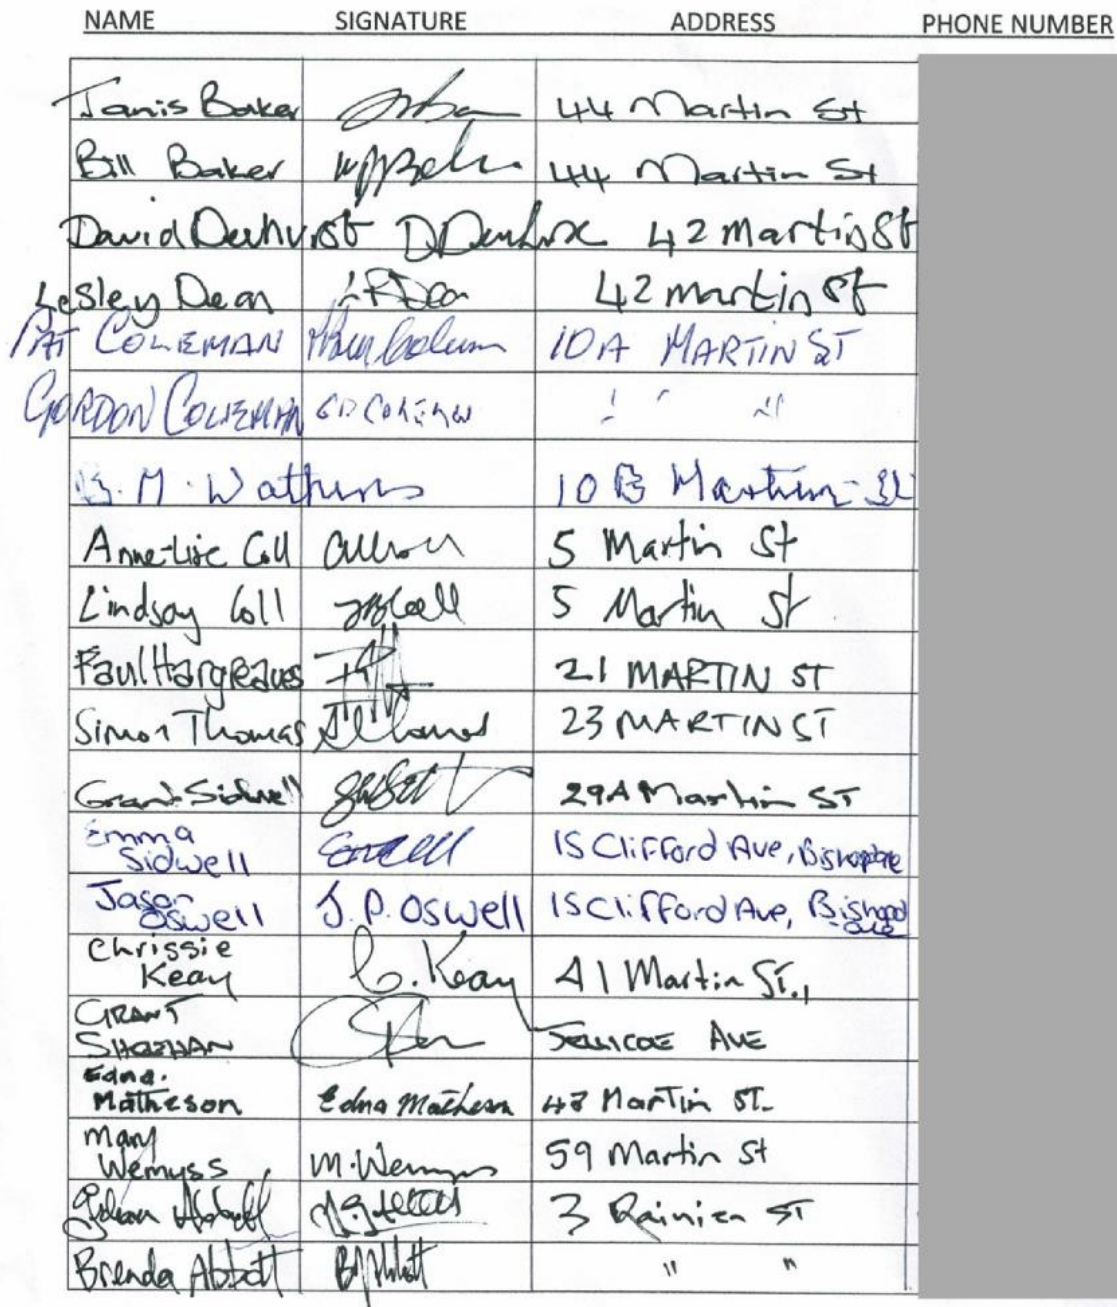 NAME SIGNATURE ADDRESS PHONE NUMBER
Janis Baker 44 Martin St
Bill Baker 44 Martin St
David Dewhurst 42 Martin St
Lesley Dean 42 martin St
PAT COLEMAN 10A MARTIN ST
GORDON COLEMAN GD COLEMAN " "
M. Watkins 10B Martin St
Anne-Lise Coll 5 Martin St
Lindsay Coll 5 Martin St
Paul Hargreaves 21 MARTIN ST
Simon Thomas 23 MARTIN ST
Grant Sidwell 29A Martin ST
Emma
Sidwell 15 Clifford Ave,
Jason
Oswell J.P. Oswell 15 Clifford Ave,
Chrissie
Keay C. Keay 41 Martin ST.,
GRANT
SHEEHAN JELLICOE AVE
Edna.
Matheson Edna Matheson Martin ST.
Mary
Wemyss M. Wemyss 59 Martin St
Abbott 3 Rainier ST
Brenda Abbott " "